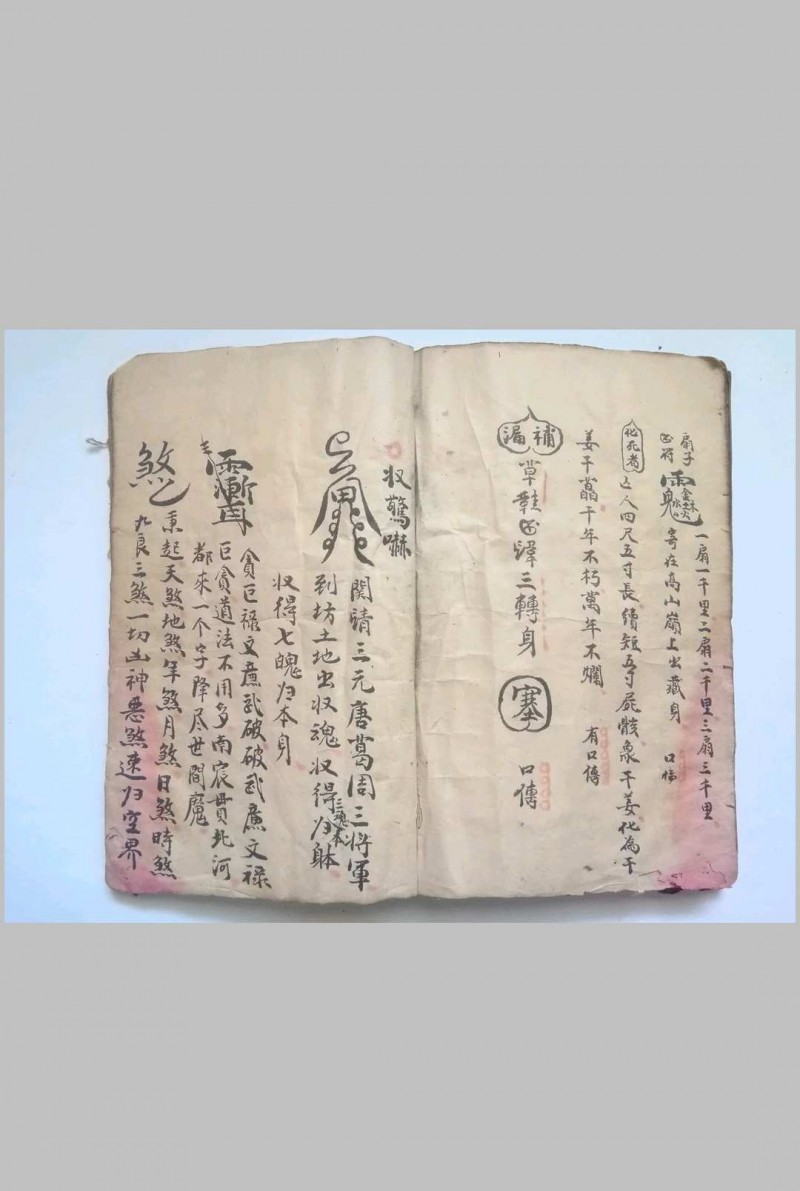 一扇一千里二扇二千里三扇三千里
扇子
寄在高山嶺上出藏身 口傳
化死者
人四尺五寸長續短五寸屍骸象干姜化為干
姜干 千年不朽萬年不爛 有口傳
補漏
草鞋 三轉身 塞 口傳
収驚嚇
関請三元唐葛周三将軍
到坊土地出収魂収得三魂归本躰
収得七魄归本身
貪巨禄文亷武破破武亷文禄
巨貪道法不用多南宸貫北河
都來一个字降尽世間魔
煞
秉起天煞地煞年煞月煞日煞時煞
九良三煞一切凶神惡煞速归空界